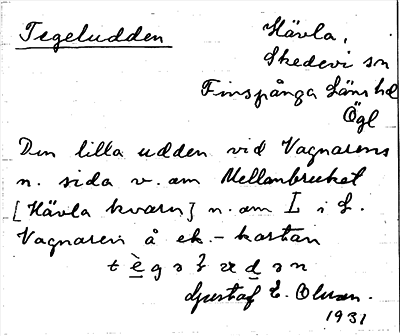 Tegeludden
Hävla,
Skedevi sn
Finspånga läns hd
Ögl
Den lilla udden vid Vagnarens
n. sida v. om Mellanbruket
[Hävla kvarn] n. om L i S.
Vagnaren å ek.-kartan
Gustaf E. Olsson.
1931